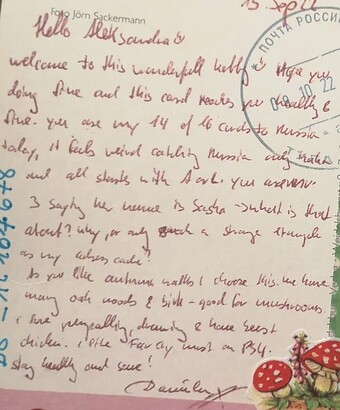 Foto Jörn Sackermann
15 Sep 22
Hello Aleksandra
welcome to this wonderfull hobby! Hope you
doing fine and this card reaches you healthy &
fine. you are my 14 of 16 cards to Russia
today, it feels weird catching Russia only
and all starts with A or t. you are
3 saying her name is Sasha → what is that
about? why, or only such a strange example
as my adress came?
As you like autumn walks I choose this. we have
many oak woods & birk - good for mushrooms.
I love penpalling, drawing & have
chicken. I like Farcry most on PS4.
stay healthy and save!
ПОЧТА РОССИИ
08 10 22
DE-12104678